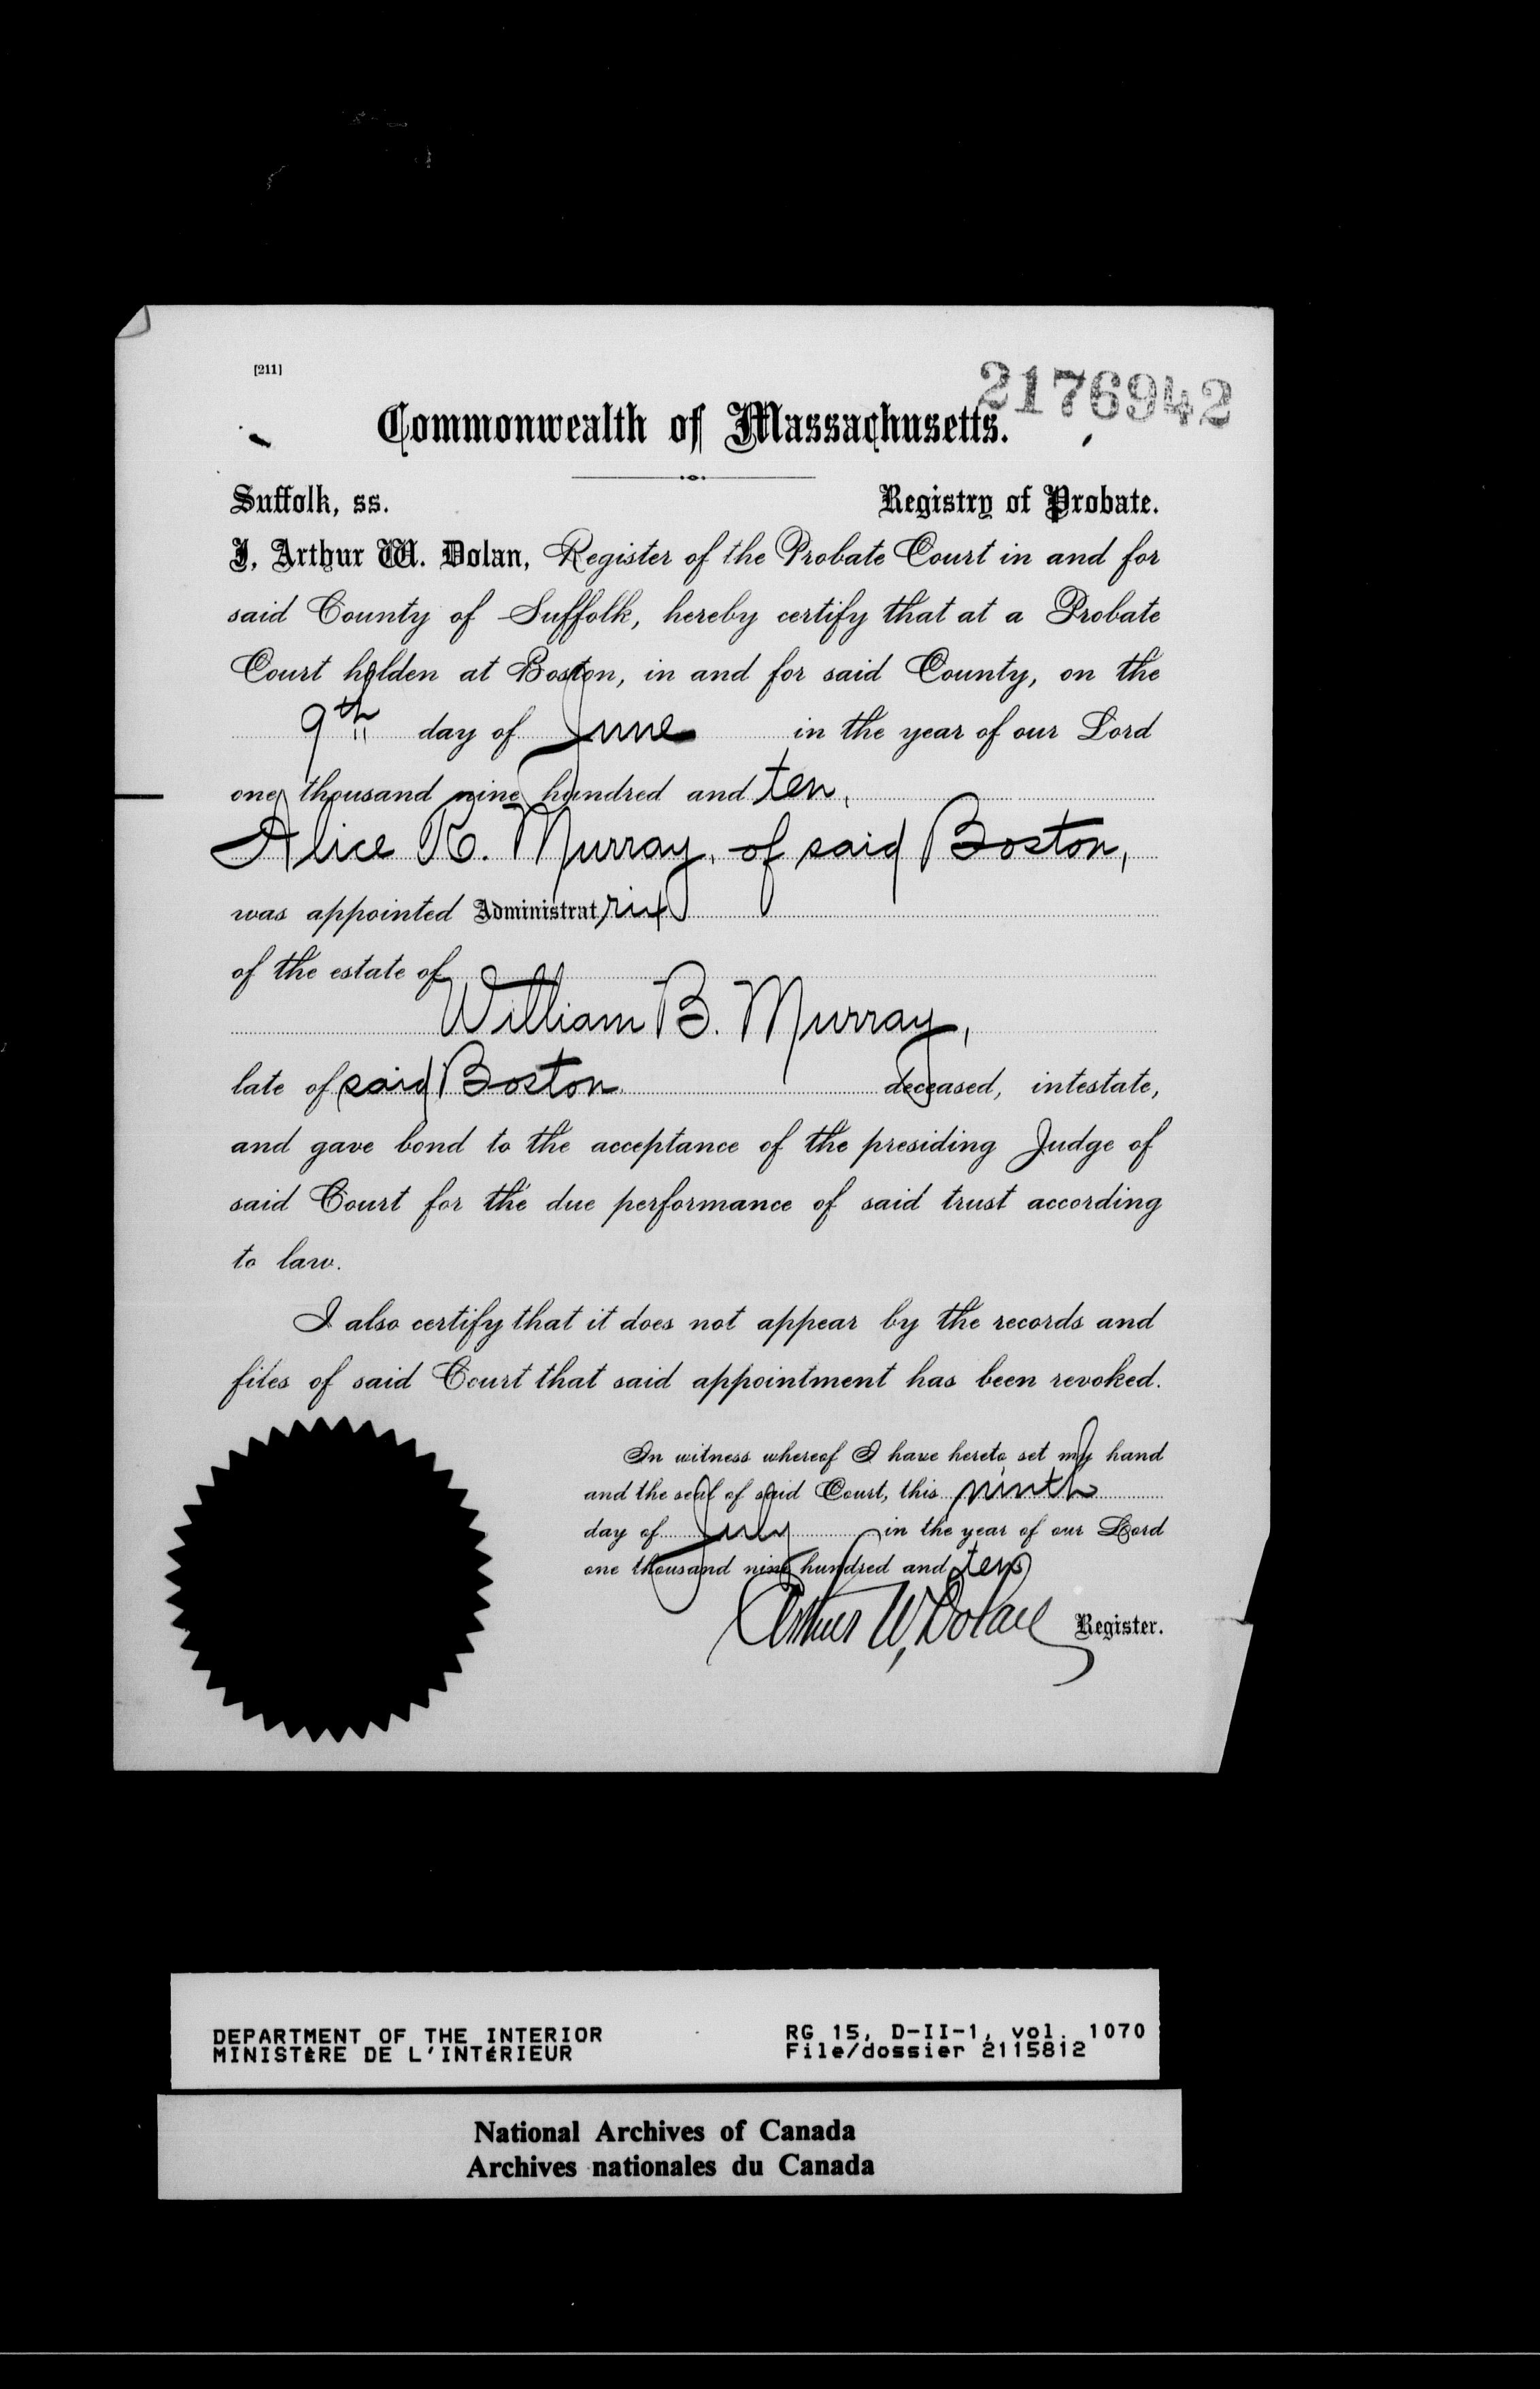 [211]
2176942
Commonwealth of Massachusetts.
Suffolk, ss. Registry of Probate.
I, Arthur W. Dolan, Register of the Probate Court in and for
said County of Suffolk, hereby certify that at a Probate
Court holden at Boston, in and for said County, on the
9th day of June in the year of our Lord
one thousand nine hundred and ten,
Alice R. Murray, of said Boston,
was appointed Administratrix
of the estate of
William B. Murray,
late of said Boston deceased, intestate,
and gave bond to the acceptance of the presiding Judge of
said Court for the due performance of said trust according
to law.
I also certify that it does not appear by the records and
files of said Court that said appointment has been revoked.
In witness whereof I have hereto set my hand
and the seal of said Court, this ninth
day of July in the year of our Lord
one thousand nine hundred and ten
Arthur W. Dolan Register.
DEPARTMENT OF THE INTERIOR RG 15, D-II-1, vol. 1070
MINISTÈRE DE L'INTÉRIEUR File/dossier 2115812
National Archives of Canada
Archives nationales du Canada